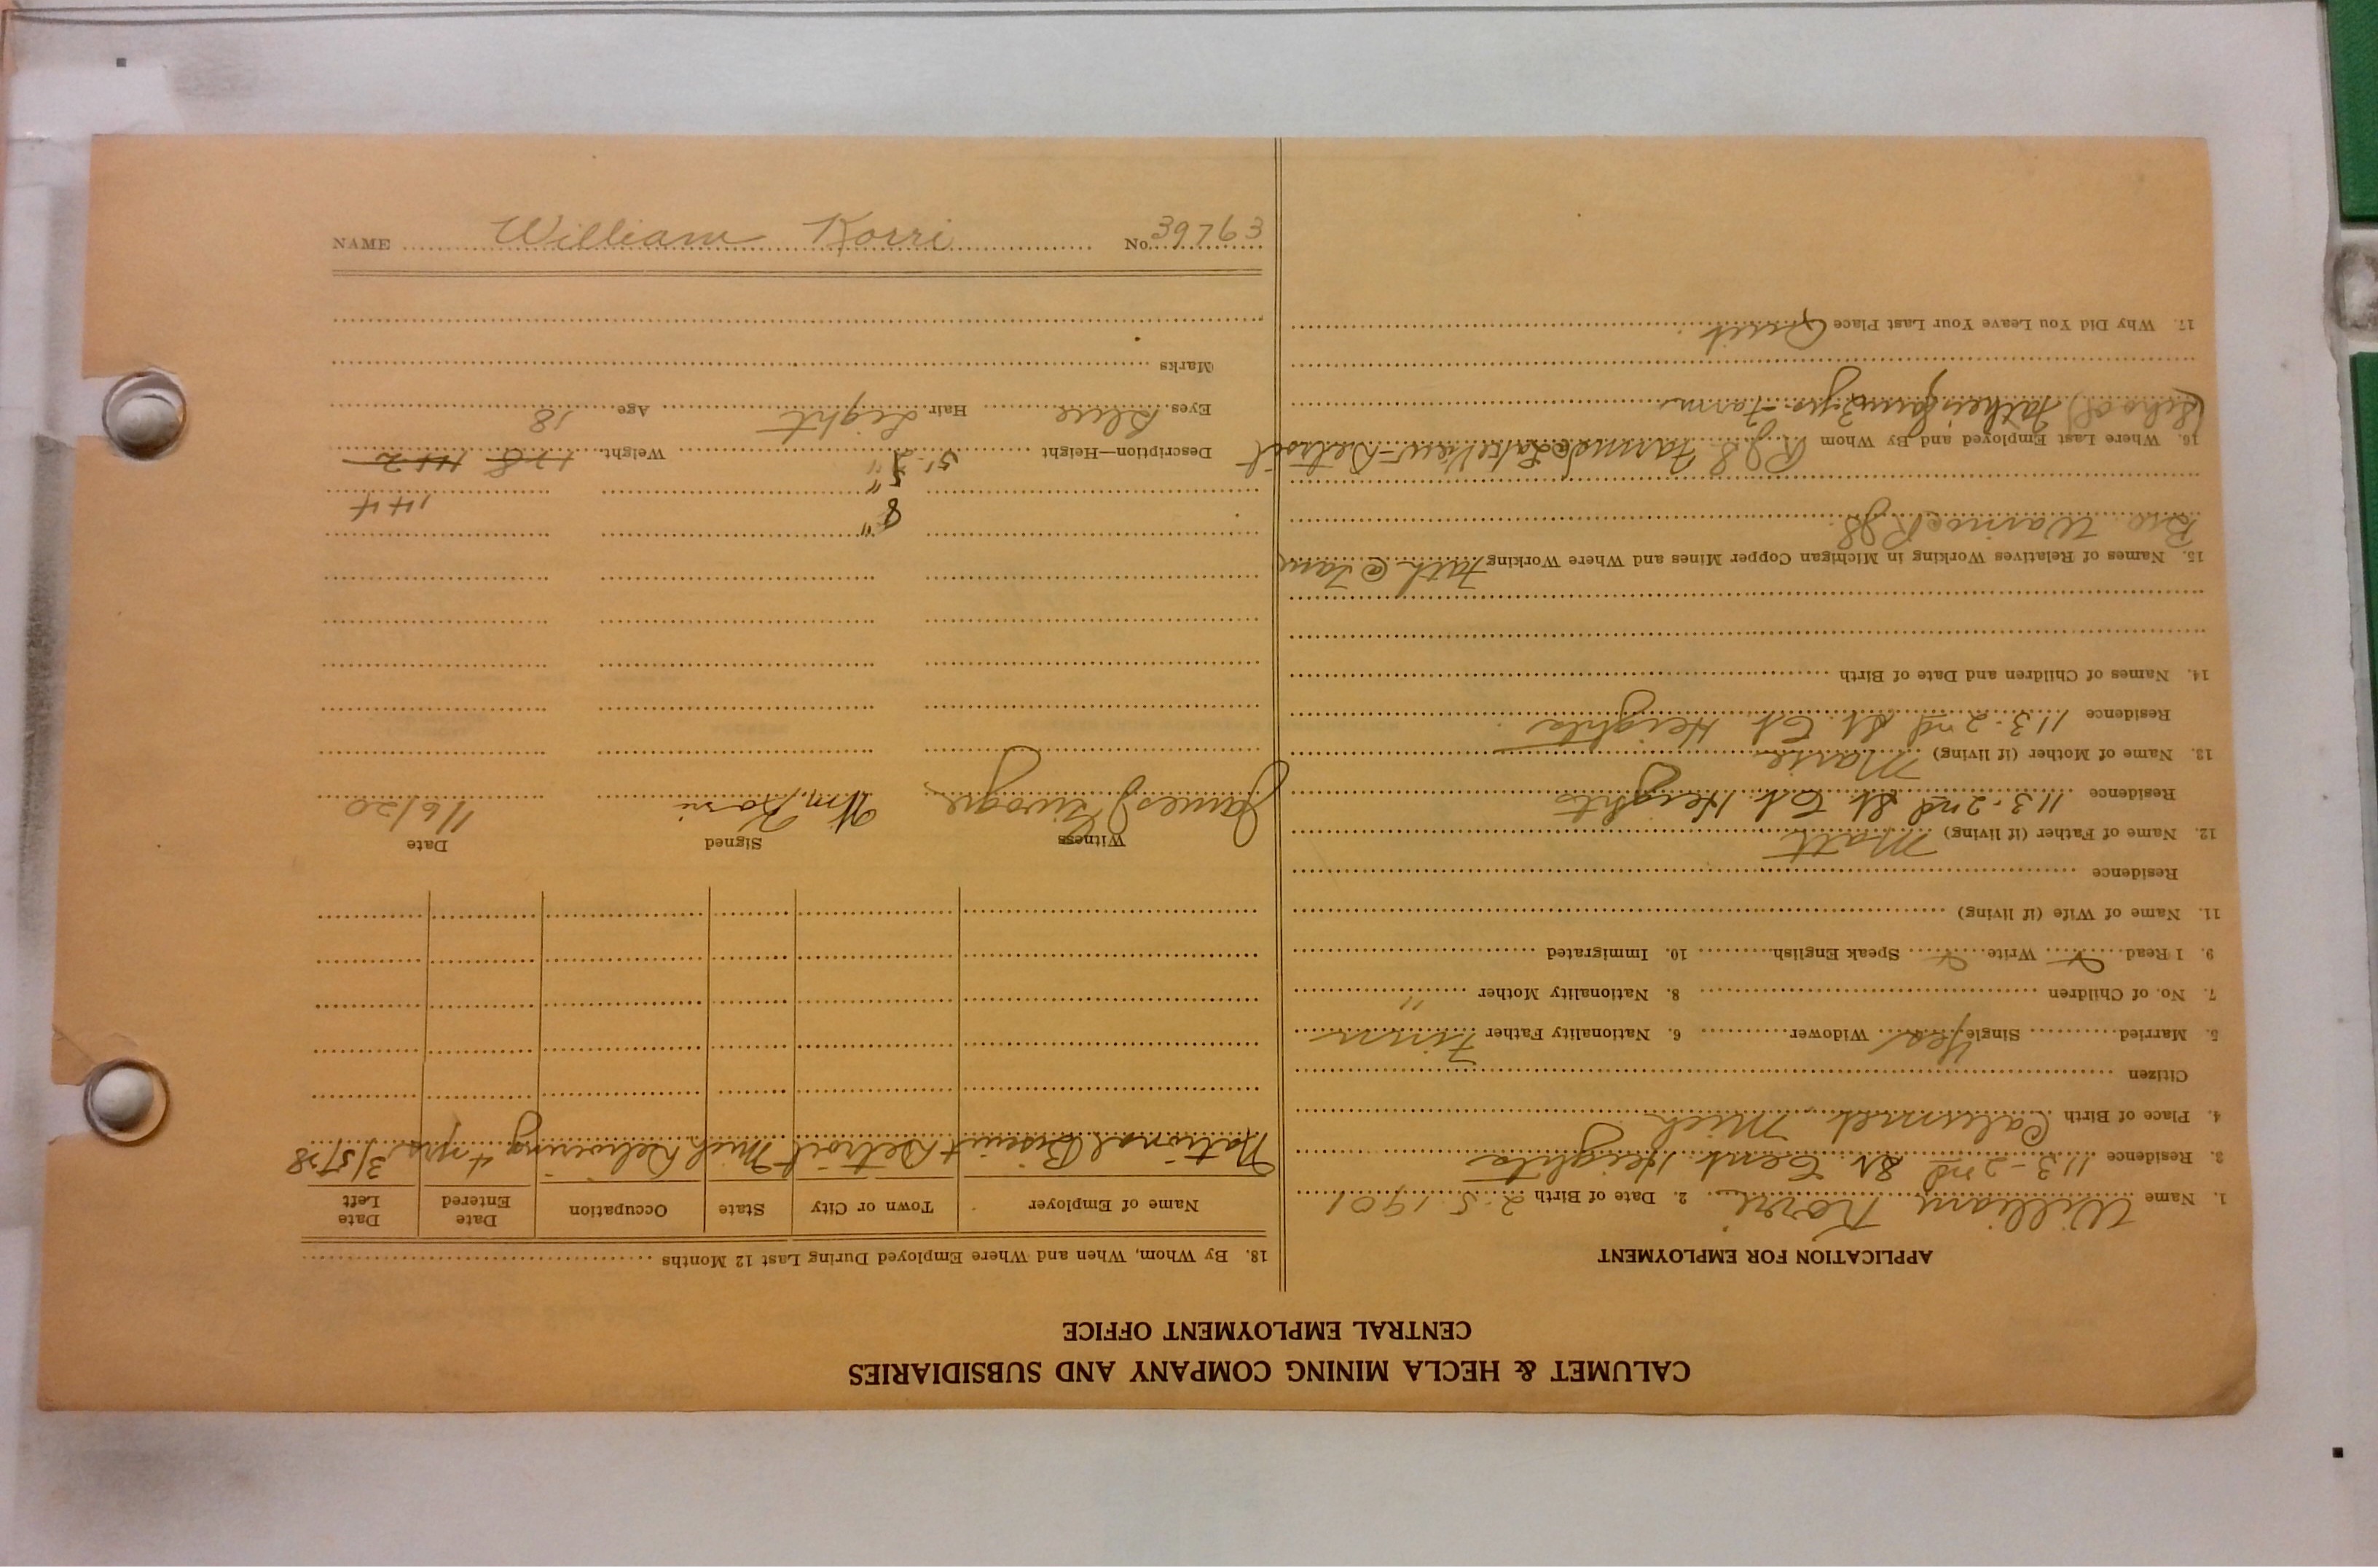 CALUMET & HECLA MINING COMPANY AND SUBSIDIARIES
CENTRAL EMPLOYMENT OFFICE
APPLICATION FOR EMPLOYMENT
1. Name William Korri 2. Date of Birth 2-5-1901
3. Residence 113-2nd St. Cent. Heights
4. Place of Birth Calumet Mich
Citizen
5. Married Single Yes Widower 6. Nationality Father Finn
7. No. of Children 8. Nationality Mother "
9. I Read Write Speak English 10. Immigrated
11. Name of Wife (if living)
Residence
12. Name of Father (if living) Matt
Residence 113-2nd St. Ct. Heights
13. Name of Mother (if living) Marie
Residence 113-2nd St. Ct. Heights
14. Names of Children and Date of Birth
15. Names of Relatives Working in Michigan Copper Mines and Where Working Fath @ Tam
Bro. Waino
16. Where Last Employed and By Whom Lakeview-Detroit
(School) Father's farm
17. Why Did You Leave Your Last Place Quit
18. By Whom, When and Where Employed During Last 12 Months
Name of Employer Town or City State Occupation Date Entered Date Left
National Biscuit Detroit Mich Delivering 4 mos. 3/5/28
Witness Signed Date
James Wm. Kori 1/6/20
8" 144
5"
Description—Height 5'-2" Weight 178 142
Eyes Blue Hair Light Age 18
Marks
NAME William Korri No. 39763